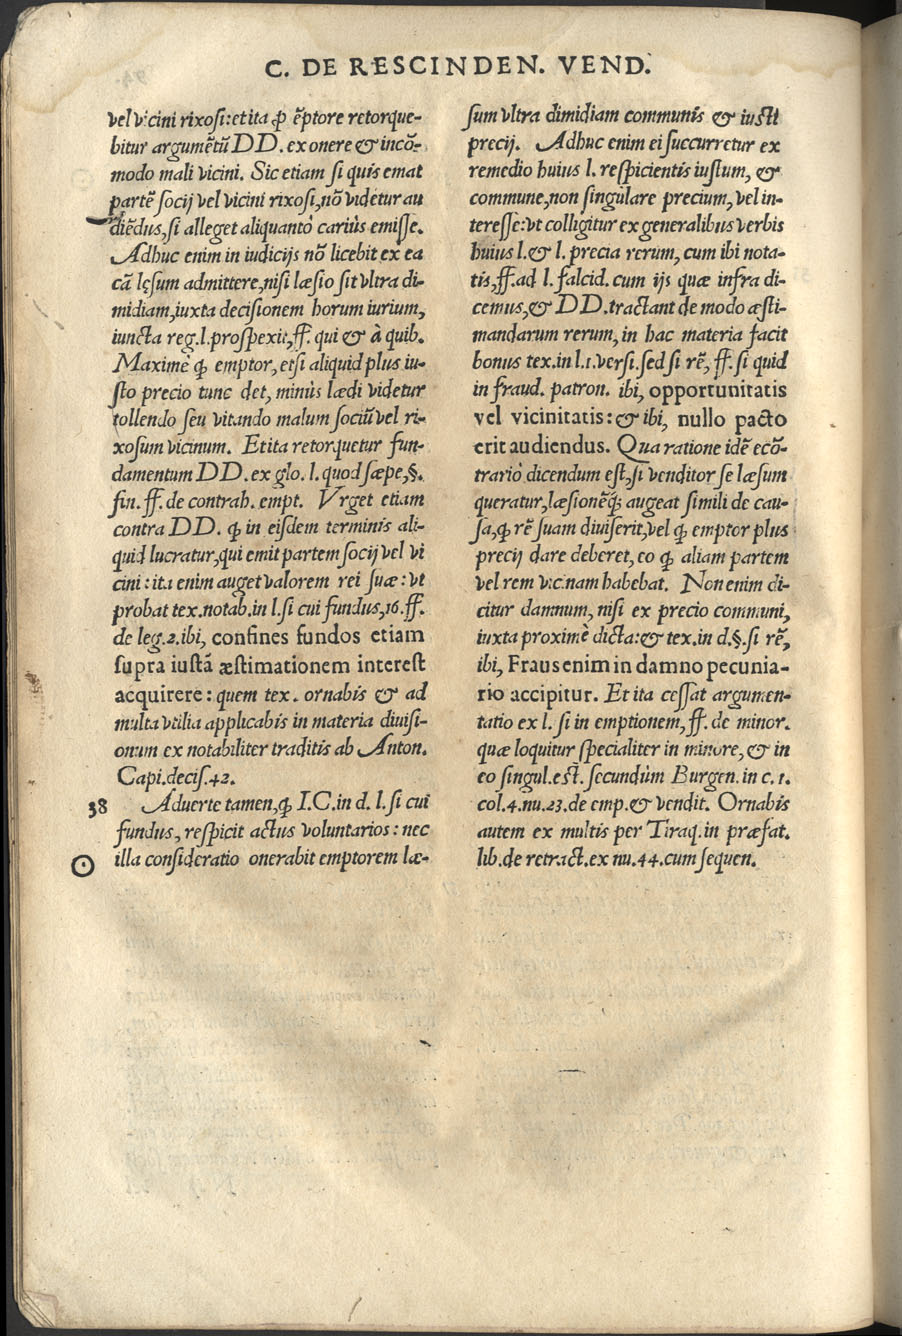 C. DE RESCINDEN. VEND.
vel vicini rixosi: et ita ꝓ ẽptore retorque-
bitur argumẽtũ DD. ex onere & incõ-
modo mali vicini. Sic etiam si quis emat
partẽ socij vel vicini rixosi, nõ videtur au
diẽdus, si alleget aliquantò cariùs emisse.
Adhuc enim in iudicijs nõ licebit ex ea
cã lęsum admittere, nisi læsio sit vltra di-
midiam, iuxta decisionem horum iurium,
iuncta reg. l. prospexit, ff. qui & à quib.
Maximè ꝙ emptor, etsi aliquid plus iu-
sto precio tunc det, minùs lædi videtur
tollendo seu vitando malum sociũ vel ri-
xosum vicinum. Et ita retorquetur fun-
damentum DD. ex glo. l. quod sæpe, §.
fin. ff. de contrah. empt. Vrget etiam
contra DD. ꝙ in eisdem terminis ali-
quid lucratur, qui emit partem socij vel vi
cini: ita enim auget valorem rei suæ: vt
probat tex. notab. in l. si cui fundus, 16. ff.
de leg. 2. ibi, confines fundos etiam
supra iustã æstimationem interest
acquirere: quem tex. ornabis & ad
multa vtilia applicabis in materia diuisi-
onum ex notabiliter traditis ab Anton.
Capi. decis. 42.
38 Aduerte tamen, ꝙ I.C. in d. l. si cui
fundus, respicit actus voluntarios: nec
illa consideratio onerabit emptorem læ-
sum vltra dimidiam communis & iusti
precij. Adhuc enim ei succurretur ex
remedio huius l. respicientis iustum, &
commune, non singulare precium, vel in-
teresse: vt colligitur ex generalibus verbis
huius l. & l. precia rerum, cum ibi nota-
tis, ff. ad l. falcid. cum ijs quæ infra di-
cemus, & DD. tractant de modo æsti-
mandarum rerum, in hac materia facit
bonus tex. in l. 1. versi. sed si rẽ, ff. si quid
in fraud. patron. ibi, opportunitatis
vel vicinitatis: & ibi, nullo pacto
erit audiendus. Qua ratione idẽ ecõ-
trariò dicendum est, si venditor se læsum
queratur, læsionẽꝗ; augeat simili de cau-
sa, ꝙ rẽ suam diuiserit, vel ꝙ emptor plus
precij dare deberet, eo ꝙ aliam partem
vel rem vicinam habebat. Non enim di-
citur damnum, nisi ex precio communi,
iuxta proximè dicta: & tex. in d. §. si rẽ,
ibi, Fraus enim in damno pecunia-
rio accipitur. Et ita cessat argumen-
tatio ex l. si in emptionem, ff. de minor.
quæ loquitur specialiter in minore, & in
eo singul. est. secundùm Burgen. in c. 1.
col. 4. nu. 23. de emp. & vendit. Ornabis
autem ex multis per Tiraq. in præfat.
lib. de retract. ex nu. 44. cum sequen.